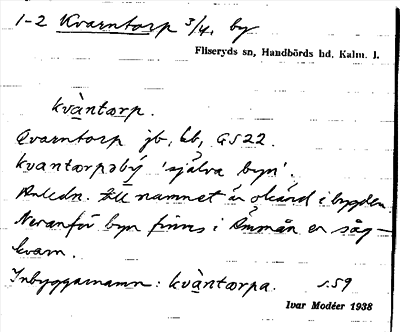 1-2 Kvarntorp 3/4, by
Fliseryds sn, Handbörds hd, Kalm. l.
kvàntærp.
Qvarntorp jb, kb, GS22.
kvantærpəbý 'själva byn'.
Anledn. till namnet är okänd i bygden.
Nedanför byn finns i Emmån en såg-
kvarn.
Inbyggarnamn: kvàntærpa. s.59
Ivar Modéer 1938